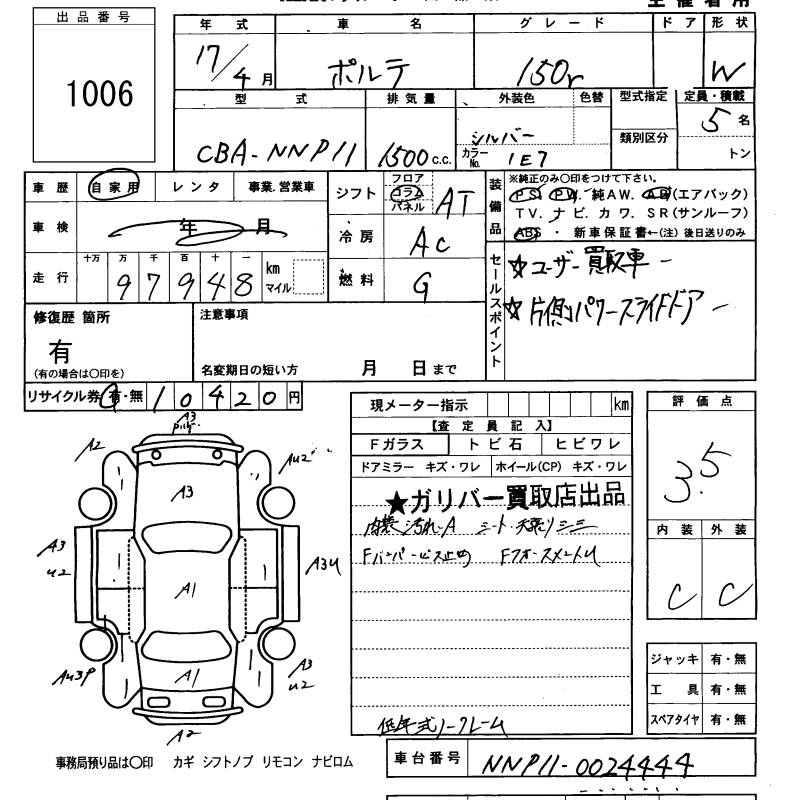 出品番号
1006
年式 車名 グレード ドア 形状
17/4月 ポルテ 150r W
型式 排気量 外装色 色替 型式指定 定員・積載
CBA-NNP11 1500c.c. シルバー 5名
カラーNo. 1E7 類別区分 トン
車歴 自家用 レンタ 事業.営業車
シフト フロア コラム パネル AT
装備品 ※純正のみ〇印をつけて下さい。
PS. PW. 純AW. AB(エアバック)
TV. ナビ. カワ. SR(サンルーフ)
ABS ・ 新車保証書←(注)後日送りのみ
車検 年 月
冷房 AC
走行 十万 万 千 百 十 一
97948 km マイル
燃料 G
セールスポイント
☆ユーザー買取車ー
☆片側パワースライドドアー
修復歴 箇所
有
(有の場合は〇印を)
注意事項
名変期日の短い方 月 日まで
リサイクル券 有・無 10420円
現メーター指示 km
【査定員記入】
Fガラス トビ石 ヒビワレ
ドアミラー キズ・ワレ ホイール(CP) キズ・ワレ
★ガリバー買取店出品
内装汚れA シート・天張りシミ
Fバンパービス止め
低年式ノークレーム
評価点
3.5
内装 外装
C C
ジャッキ 有・無
工具 有・無
スペアタイヤ 有・無
A3
A2
AU2
A3
A3
U2
A1
A3U
AU3P
A1
A3
U2
A2
事務局預り品は〇印 カギ シフトノブ リモコン ナビロム
車台番号 NNP11-0024444